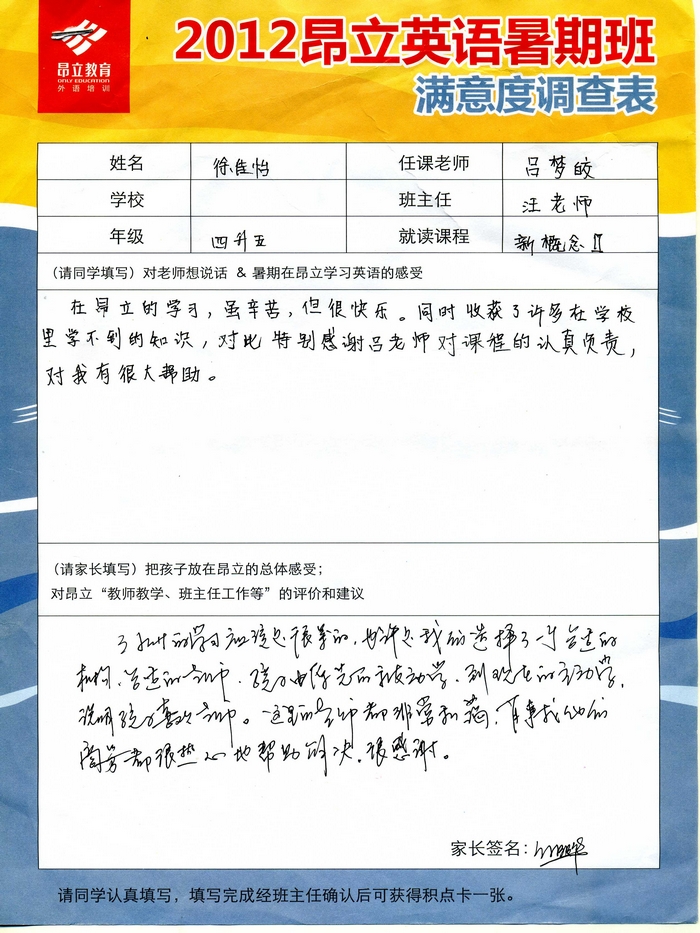 昂立教育
ONLY EDUCATION
外语培训
2012昂立英语暑期班
满意度调查表
姓名 徐佳怡 任课老师 吕梦皎
学校 班主任 汪老师
年级 四升五 就读课程 新概念II
(请同学填写)对老师想说话 & 暑期在昂立学习英语的感受
在昂立的学习,虽辛苦,但很快乐。同时收获了许多在学校
里学不到的知识,对此特别感谢吕老师对课程的认真负责,
对我有很大帮助。
(请家长填写)把孩子放在昂立的总体感受;
对昂立“教师教学、班主任工作等”的评价和建议
的学习应该是很美的,也许是我们选择了一个合适的
机构,合适的老师,孩子由原先的被动学,到现在的主动学,
说明孩子喜欢老师。这里的老师都非常和蔼,有事找他们
都很热心地帮助解决,很感谢。
家长签名:
请同学认真填写,填写完成经班主任确认后可获得积点卡一张。